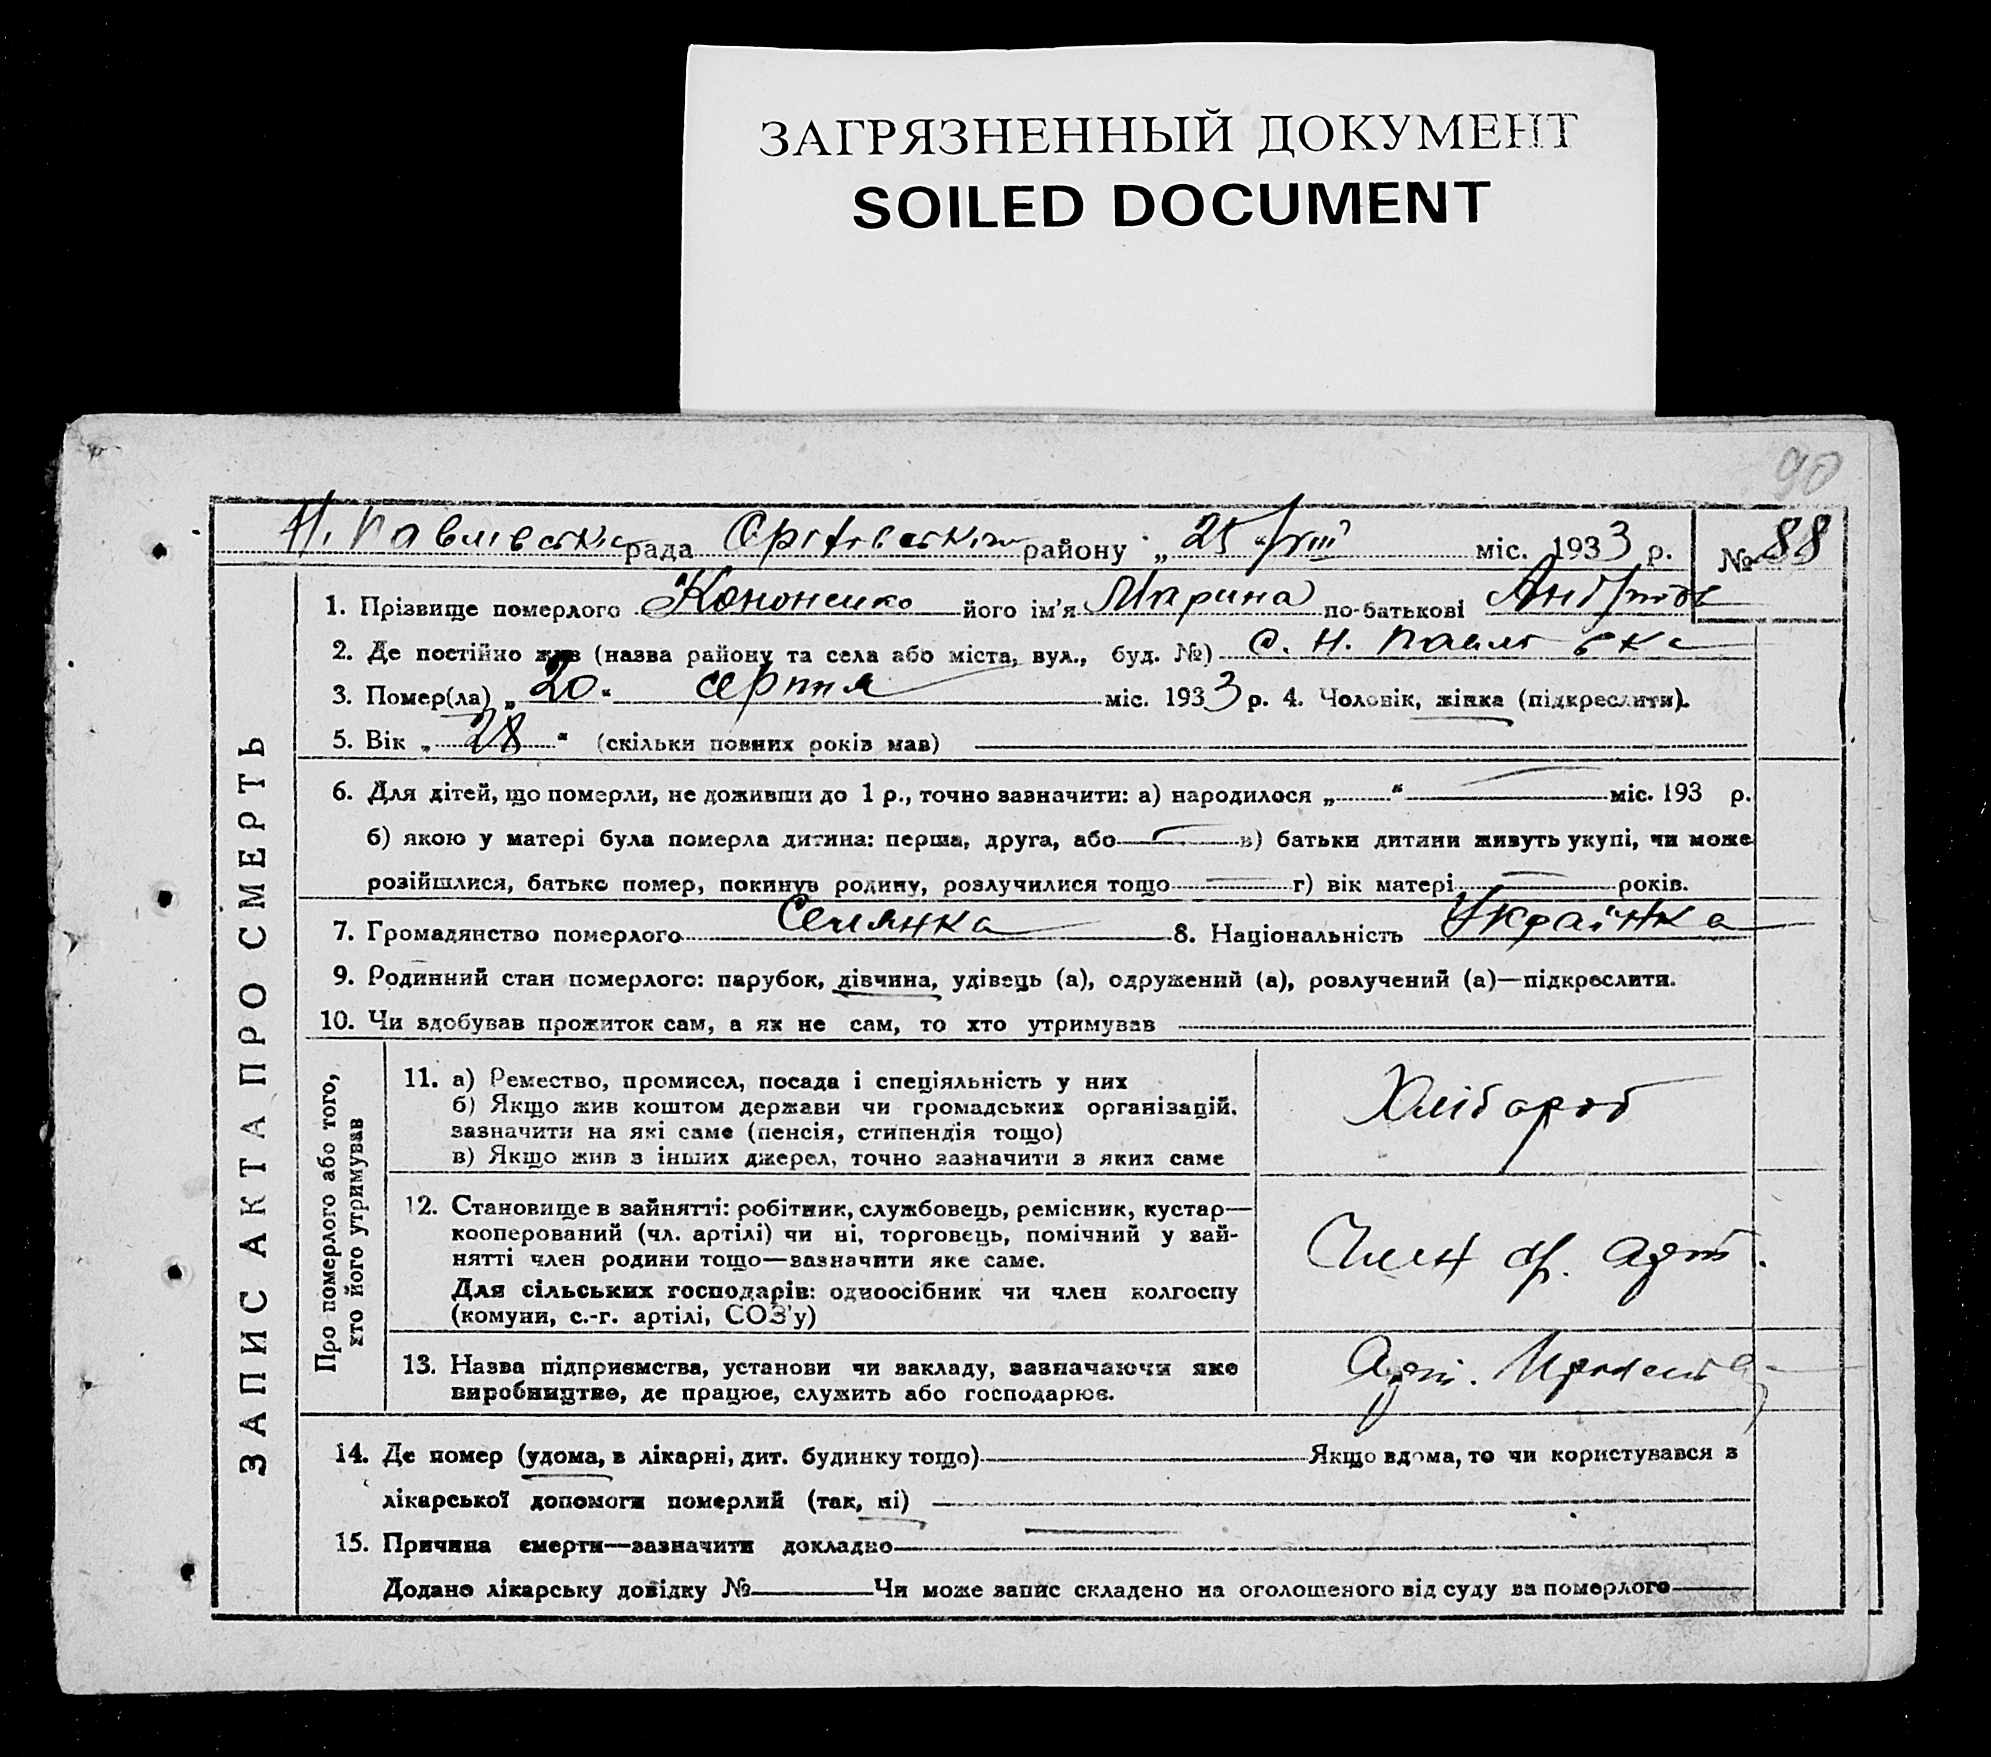 ЗАГРЯЗНЕННЫЙ ДОКУМЕНТ
SOILED DOCUMENT
90
Н. Павлівська рада району „25“ VIII міс. 1933 р. № 88
ЗАПИС АКТА ПРО СМЕРТЬ
1. Прізвище померлого Кононенко його ім'я Марина по-батькові
2. Де постійно жив (назва району та села або міста, вул., буд. №) с. Н. Павлівка
3. Помер(ла) „20“ серпня міс. 1933 р. 4. Чоловік, жінка (підкреслити).
5. Вік „28“ (скільки повних років мав)
6. Для дітей, що померли, не доживши до 1 р., точно зазначити: а) народилося „ “ міс. 193 р.
б) якою у матері була померла дитина: перша, друга, або в) батьки дитини живуть укупі, чи може
розійшлися, батько помер, покинув родину, розлучилися тощо г) вік матері років.
7. Громадянство померлого Селянка 8. Національність Українка
9. Родинний стан померлого: парубок, дівчина, удівець (а), одружений (а), розлучений (а)—підкреслити.
10. Чи здобував прожиток сам, а як не сам, то хто утримував
Про померлого або того,
хто його утримував
11. а) Ремество, промисел, посада і спеціяльність у них
б) Якщо жив коштом держави чи громадських організацій,
зазначити на які саме (пенсія, стипендія тощо)
в) Якщо жив з інших джерел, точно зазначити з яких саме
Хлібороб
12. Становище в занятті: робітник, службовець, ремісник, кустар—
кооперований (чл. артілі) чи ні, торговець, помічний у зай-
нятті член родини тощо—зазначити яке саме.
Для сільських господарів: одноосібник чи член колгоспу
(комуни, с.-г. артілі, СОЗ'у)
Член
13. Назва підприємства, установи чи закладу, зазначаючи яке
виробництво, де працює, служить або господарює.
14. Де помер (удома, в лікарні, дит. будинку тощо) Якщо вдома, то чи користувався з
лікарської допомоги померлий (так, ні)
15. Причина смерти—зазначити докладно
Додано лікарську довідку № Чи може запис складено на оголошеного від суду за померлого